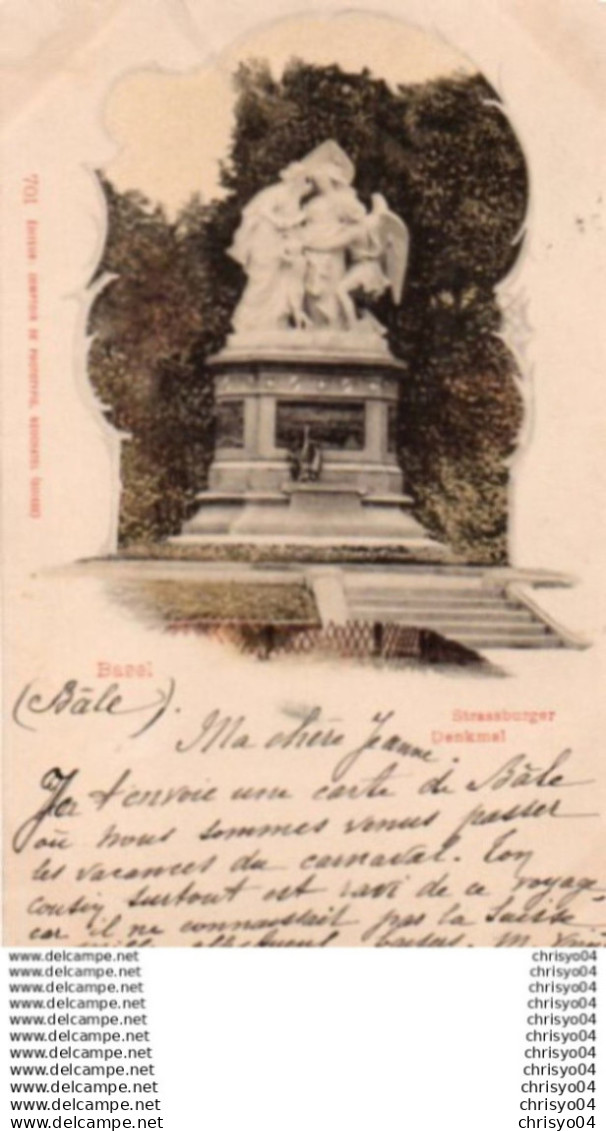 701 EDITION COMPTOIR DE PHOTOTYPIE, NEUCHATEL (SUISSE)
Basel
(Bâle).
Strassburger
Denkmal
Ma chère Jeanne.
Je t'envoie une carte de Bâle
où nous sommes venus passer
les vacances du carnaval. Ton
cousin surtout est ravi de ce voyage,
car il ne connaissait pas la Suisse
mille baisers. M.
www.delcampe.net chrisyo04
www.delcampe.net chrisyo04
www.delcampe.net chrisyo04
www.delcampe.net chrisyo04
www.delcampe.net chrisyo04
www.delcampe.net chrisyo04
www.delcampe.net chrisyo04
www.delcampe.net chrisyo04
www.delcampe.net chrisyo04
www.delcampe.net chrisyo04
www.delcampe.net chrisyo04